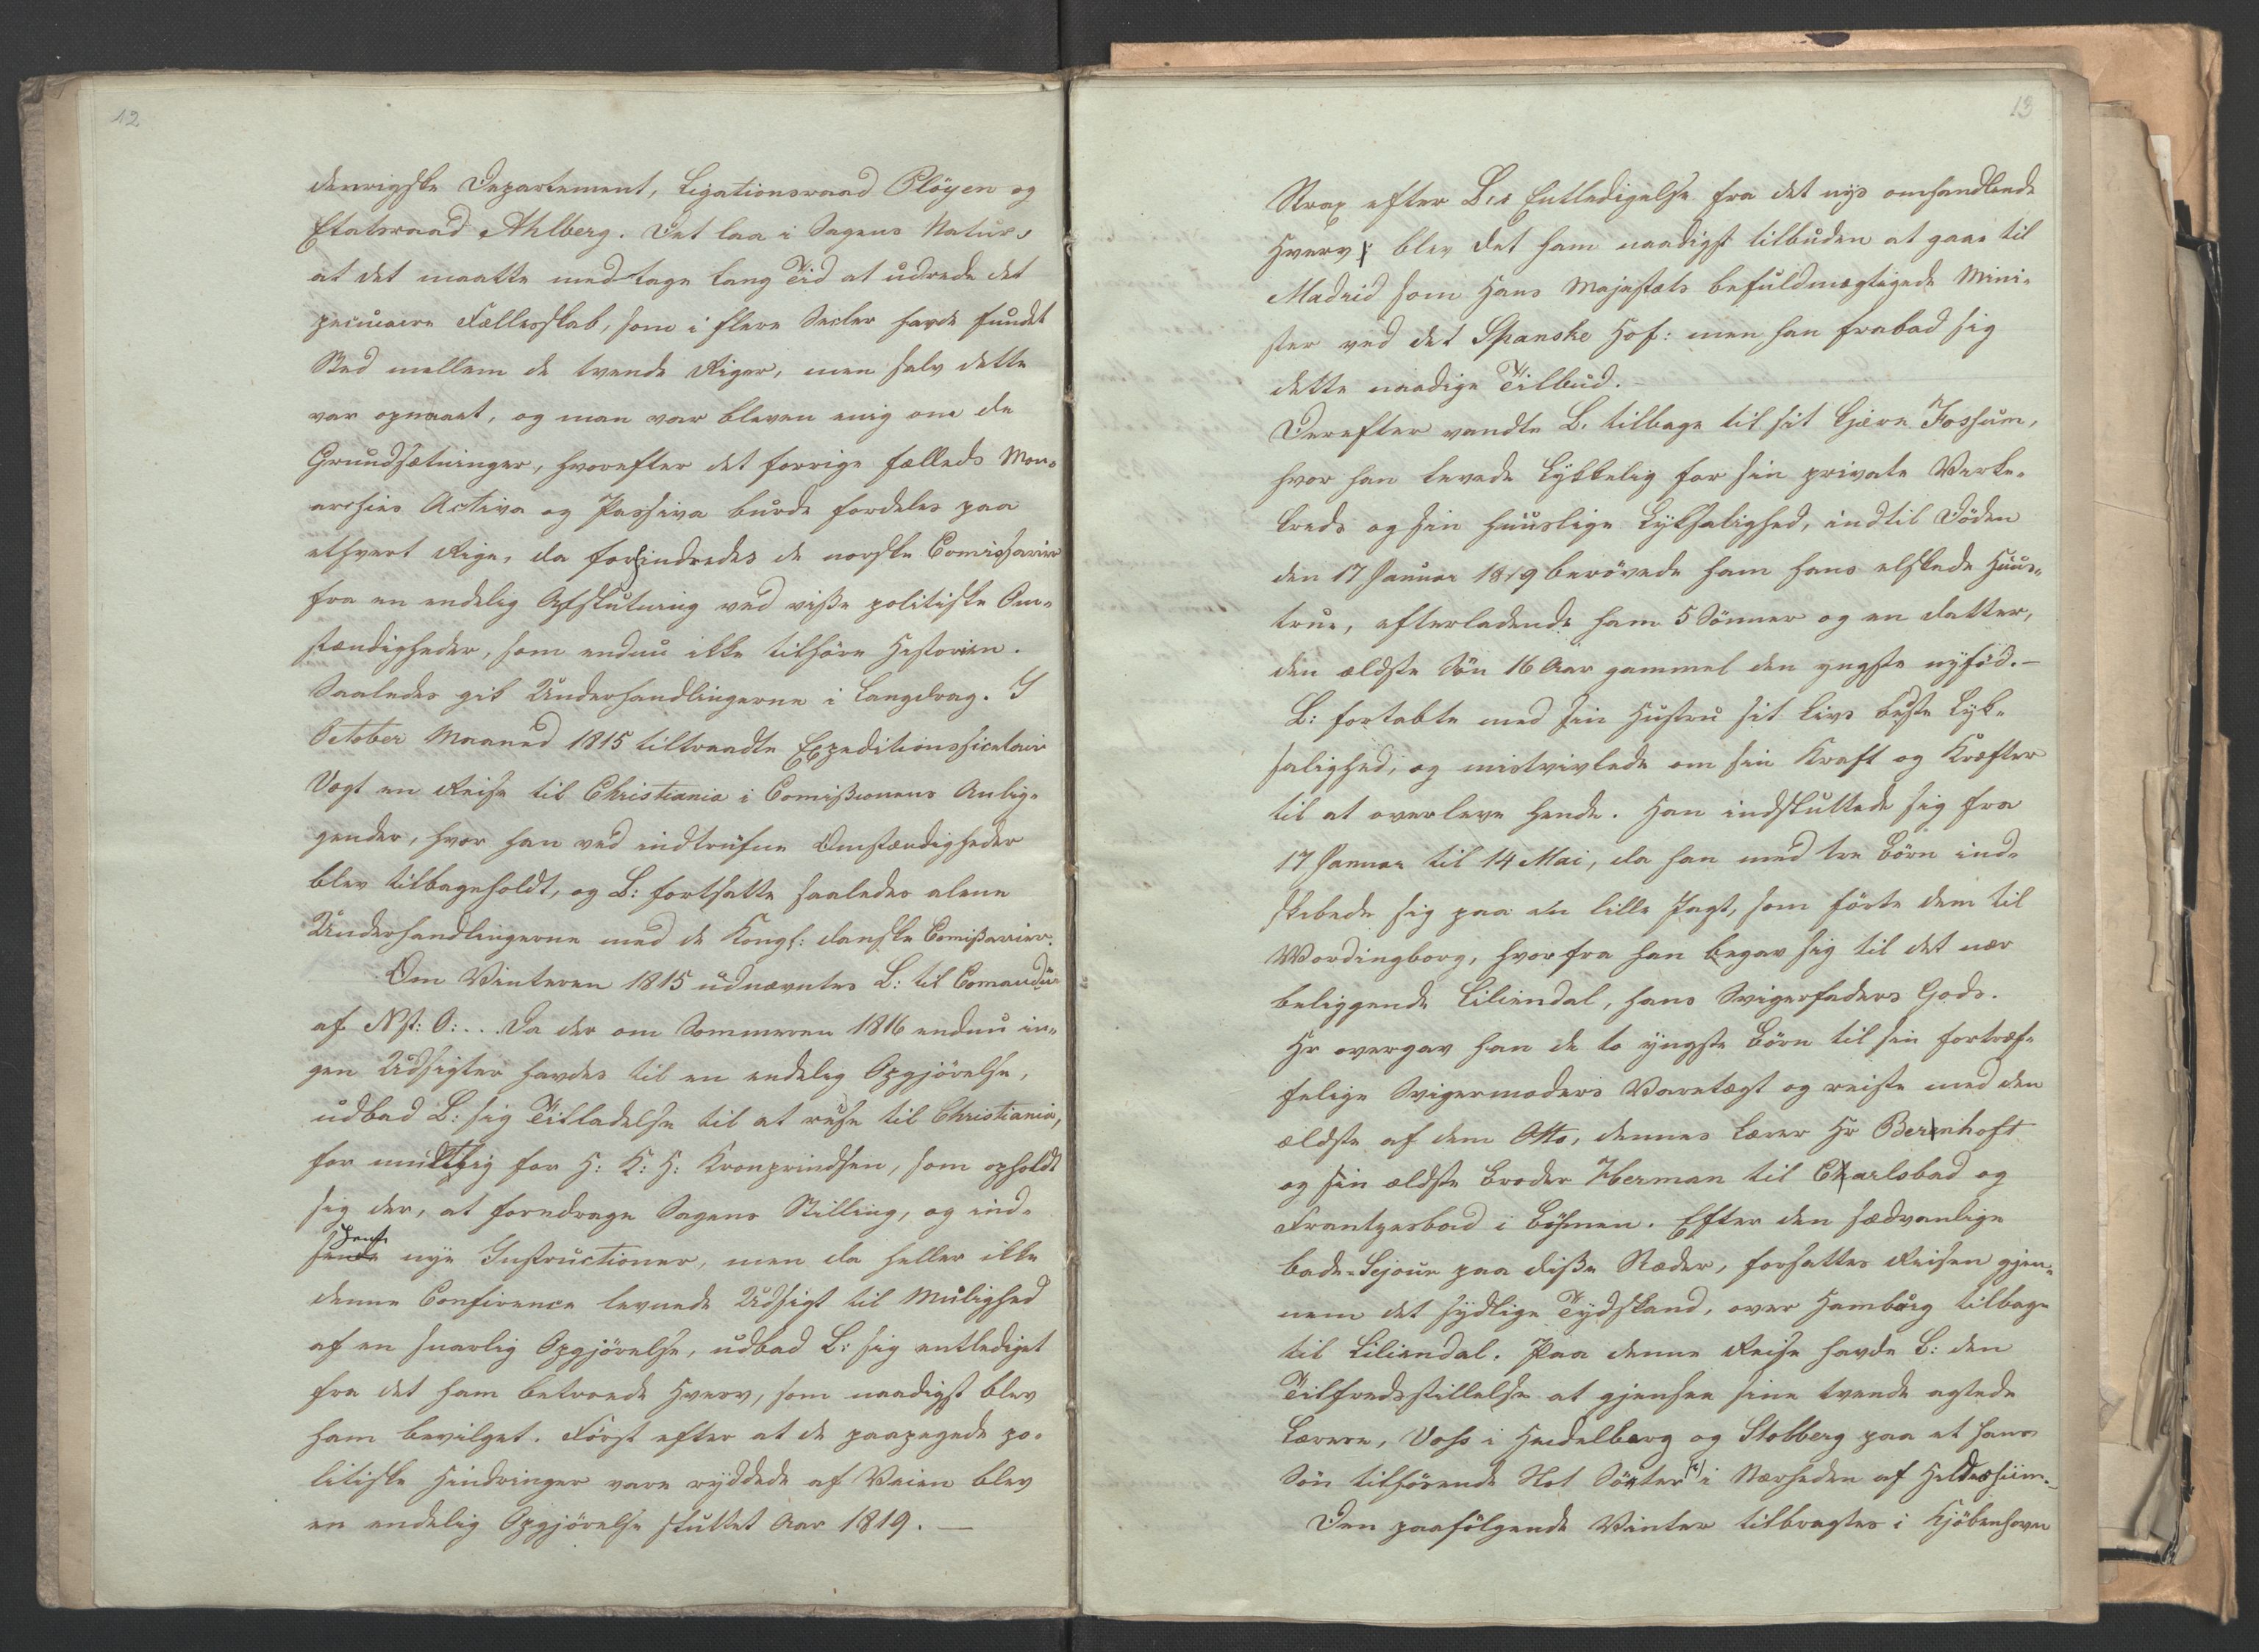 12
denrigske Departement, Legationsraad Pløyen og
Etatsraad Ahlberg. Det laa i Sagens Natur,
at det maatte medtage lang Tid at udrede det
pecuniære Fællesskab, som i flere Secler havde fundet
Sted mellem de tvende Riger, men selv dette
var opnaaet, og man var bleven enig om de
Grundsætninger, hvorefter det forrige fælleds Mon-
archies Activa og Passiva burde fordeles paa
ethvert Rige, da forhindredes de norske Comissarier
fra en endelig Afslutning ved visse politiske Om-
stændigheder, som endnu ikke tilhøre Historien.
Saaledes gik Underhandlingerne i Langdrag. I
October Maaned 1815 tiltraadte Expeditionssicetair
Vogt en Reise til Christiania i Comissionens Anlig-
gender, hvor han ved indtrufne Omstændigheder
blev tilbageholdt, og L: fortsatte saaledes alene
Underhandlingerne med de Kongl: danske Comissarier.
Om Vinteren 1815 udnævntes L: til Comandør
af Nst: O:... Da der om Sommeren 1816 endnu in-
gen Udsigter havdes til en endelig Opgjørelse,
udbad L: sig Tilladelse til at reise til Christiania,
for mundtlig for H: K: H: Kronprindsen, som opholdt
sig der, at foredrage Sagens Stilling, og ind-
hente
sende nye Instructioner, men da heller ikke
denne Conference levnede Udsigt til Mulighed
af en snarlig Opgjørelse, udbad L: sig entlediget
fra det ham betroede Hverv, som naadigst blev
ham bevilget. Først efter at de paapegede po-
litiske Hindringer vare ryddede af Veien blev
en endelig Opgjørelse sluttet Aar 1819. —
13
Strax efter L:s Entledigelse fra det nys omhandlede
Hverv blev det ham naadigst tilbuden at gaae til
Madrid som Hans Majestæts befuldmægtigede Mini-
ster ved det Spanske Hof: men han frabad sig
dette naadige Tilbud. —
Derefter vendte L. tilbage til sit kjære Fossum,
hvor han levede lykkelig for sin private Virke-
kreds og sin huuslige Lyksalighed, indtil Døden
den 17 Januar 1819 berøvede ham hans elskede Huus-
true, efterladende ham 5 Sønner og en Datter,
den ældste Søn 16 Aar gammel den yngste nyfød. —
L: fortabte med sin Hustru sit Livs beste Lyk-
salighed, og mistvivlede om sin Kraft og Kræfter
til at overleve hende. Han indsluttede sig fra
17 Januar til 14 Mai, da han med tre Børn ind-
skibede sig paa en lille Jagt, som førte dem til
Wordingborg, hvorfra han begav sig til det nær
beliggende Liliendal, hans Svigerfaders Gods.
Hr overgav han de to yngste Børn til sin fortræf-
felige Svigermoders Varetægt og reiste med den
ældste af dem Otto, dennes Lærer Hr Berenhoft
og sin ældste Broder Herman til Carlsbad og
Frantzesbad i Bøhmen. Efter den sædvanlige
bade-Sejour paa disse Stæder, forsattes Reisen gjen-
nem det sydlige Tydskland, over Hamburg tilbage
til Liliendal. Paa denne Reise havde L: den
Tilfredsstillelse at gjensee sine tvende agtede
Lærere, Voss i Heidelberg og Stolberg paa et hans
Søn tilhørende Slot Sönter i Nærheden af Hildesheim.
Den paafølgende Vinter tilbragtes i Kjøbenhavn